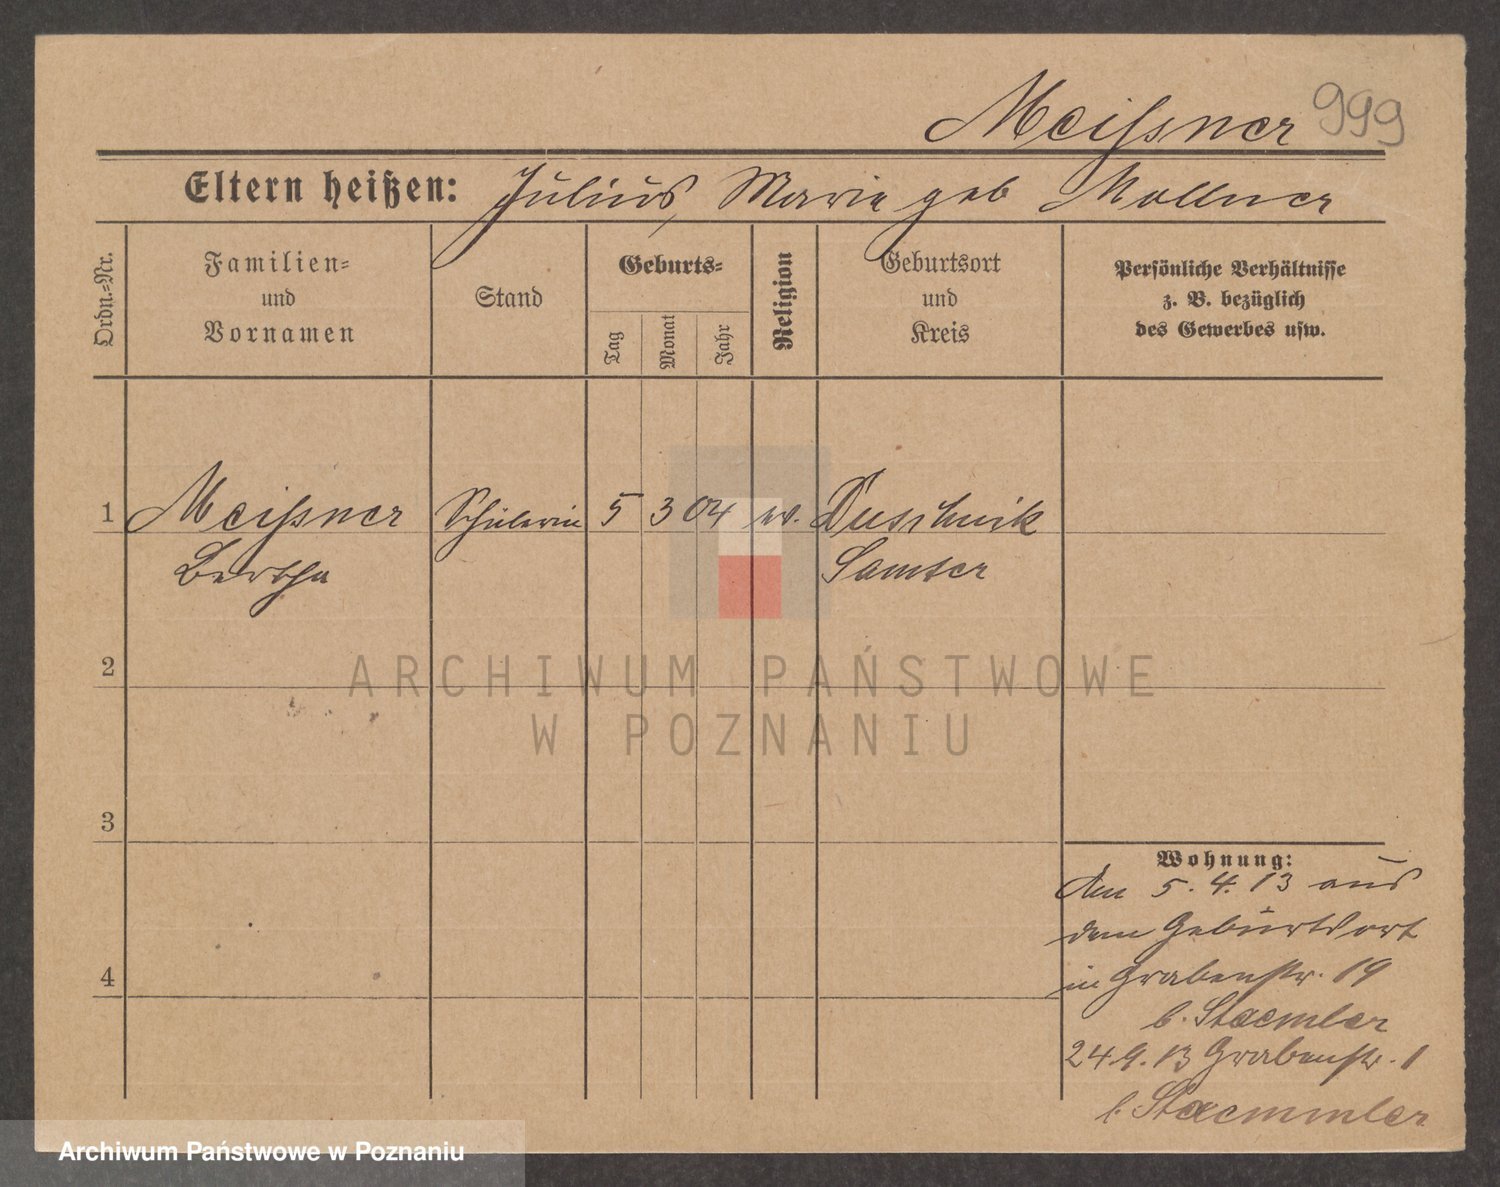 Meißner 999
Eltern heißen: Julius, Marie geb Mollner
Ordn.=Nr.
Familien=
und
Vornamen
Stand
Geburts=
Tag
Monat
Jahr
Religion
Geburtsort
und
Kreis
Persönliche Verhältnisse
z. B. bezüglich
des Gewerbes usw.
1 Meißner Schülerin 5 3 04 ev. Duschnik
Bertha Samter
2
ARCHIWUM PAŃSTWOWE
W POZNANIU
3
Wohnung:
Am 5.4.13 aus
dem Geburtsort
in Grabenstr. 19
4
b. Staemler
24.9.13 Grabenstr. 1
b. Staemmler
Archiwum Państwowe w Poznaniu